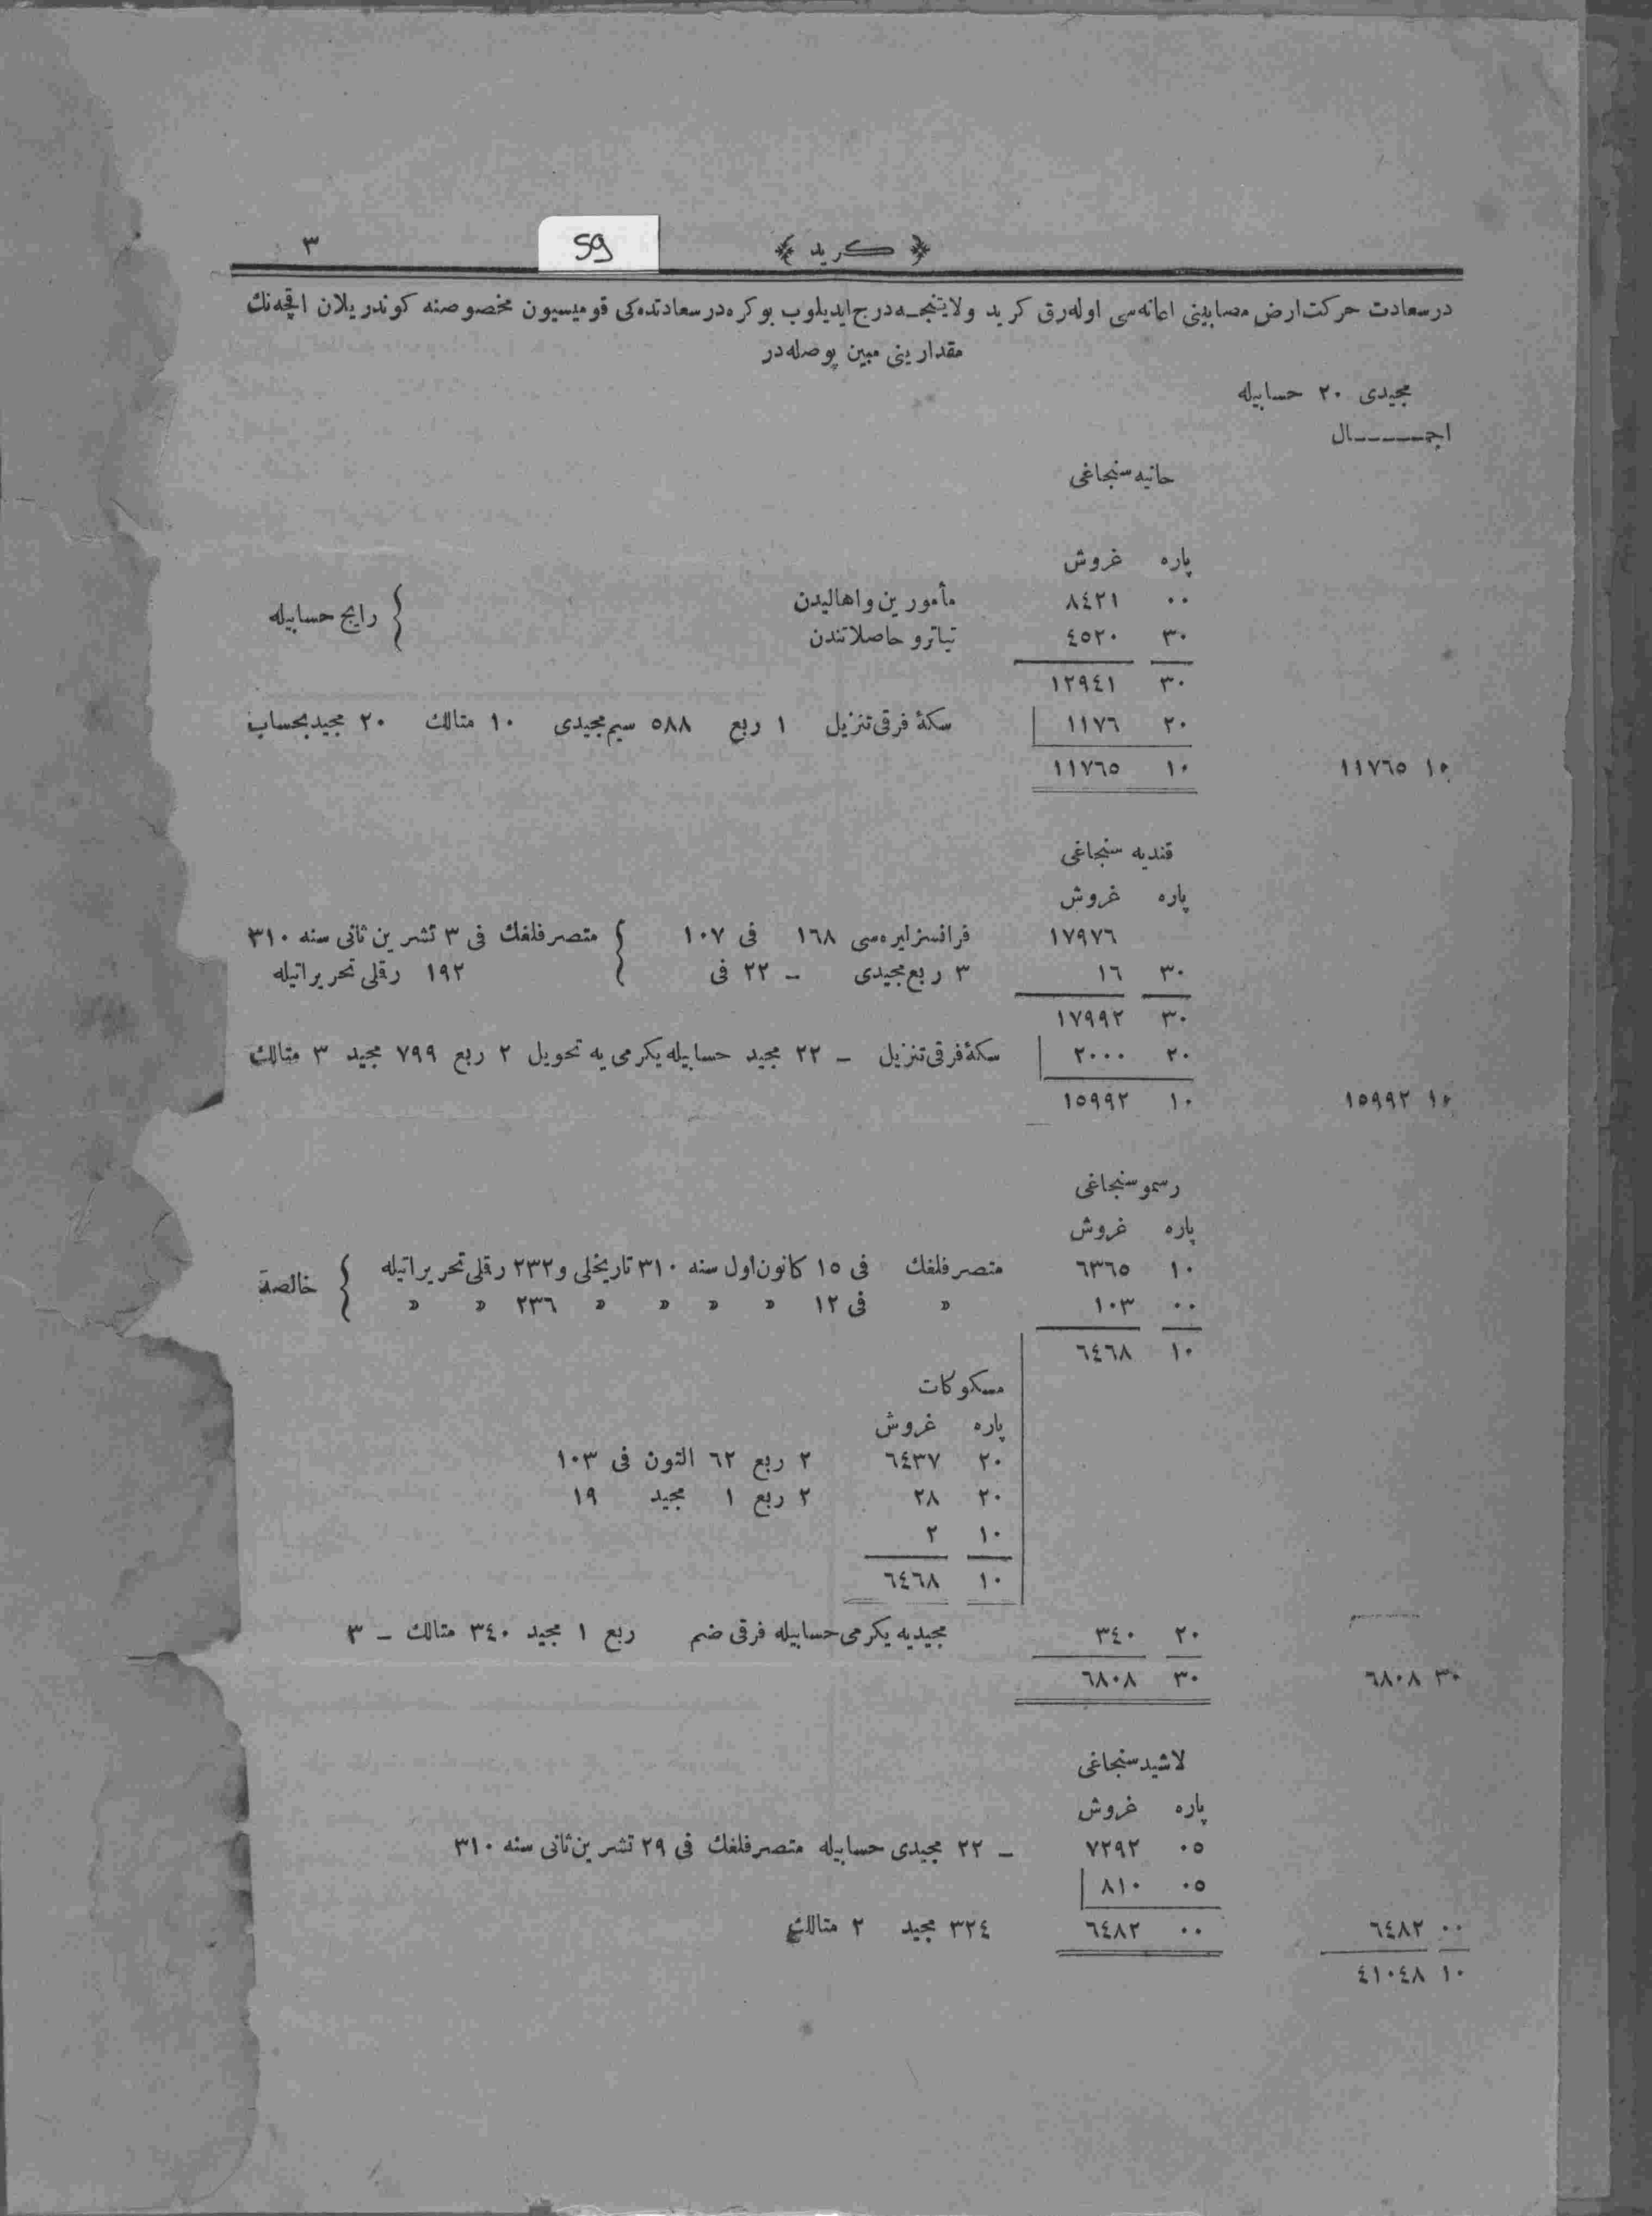 ﴿ كريد ﴾ 59 ٣
درسعادت حركت‌ارض مصابینی اعانه‌سی اوله‌رق كريد ولايتنجه درج ايديلوب بو كره درسعادتده‌كی قوميسيون مخصوصنه كوندريلان اقچه‌نك
مقدارينی مبين پوصله‌در
مجيدی ٢٠ حسابيله
اجمـــــال
حانيه سنجاغی
پاره غروش
٠٠ ٨٤٢١ مأمورين و اهاليدن } رايج حسابيله
٣٠ ٤٥٢٠ تياترو حاصلاتندن
٣٠ ١٢٩٤١
٢٠ ١١٧٦ سكهٔ فرقی تنزيل ١ ربع ٥٨٨ سيم مجيدی ١٠ متالك ٢٠ مجيد بحساب
١٠ ١١٧٦٥ ١٠ ١١٧٦٥
قنديه سنجاغی
پاره غروش
١٧٩٧٦ فرانسز ليره‌سی ١٦٨ فی ١٠٧ } متصرفلغك فی ٣ تشرين ثانی سنه ٣١٠
٣٠ ١٦ ٣ ربع مجيدی ــ ٢٢ فی ١٩٢ رقملی تحريراتيله
٣٠ ١٧٩٩٢
٢٠ ٢٠٠٠ سكهٔ فرقی تنزيل ــ ٢٢ مجيد حسابيله يكرمی يه تحويل ٢ ربع ٧٩٩ مجيد ٣ متالك
١٠ ١٥٩٩٢ ١٠ ١٥٩٩٢
رسمو سنجاغی
پاره غروش
١٠ ٦٣٦٥ متصرفلغك فی ١٥ كانون اول سنه ٣١٠ تاريخلی و ٢٣٢ رقملی تحريراتيله } خالصة
٠٠ ١٠٣ » فی ١٢ » » » » ٢٣٦ » »
١٠ ٦٤٦٨
مسكوكات
پاره غروش
٢٠ ٦٤٣٧ ٢ ربع ٦٢ التون فی ١٠٣
٢٠ ٢٨ ٢ ربع ١ مجيد ١٩
١٠ ٢
١٠ ٦٤٦٨
٢٠ ٣٤٠ مجيديه يكرمی حسابيله فرقی ضم ربع ١ مجيد ٣٤٠ متالك ــ ٣
٣٠ ٦٨٠٨ ٣٠ ٦٨٠٨
لاشيد سنجاغی
پاره غروش
٠٥ ٧٢٩٢ ــ ٢٢ مجيدی حسابيله متصرفلغك فی ٢٩ تشرين ثانی سنه ٣١٠
٠٥ ٨١٠
٠٠ ٦٤٨٢ ٣٢٤ مجيد ٢ متالك ٠٠ ٦٤٨٢
١٠ ٤١٠٤٨